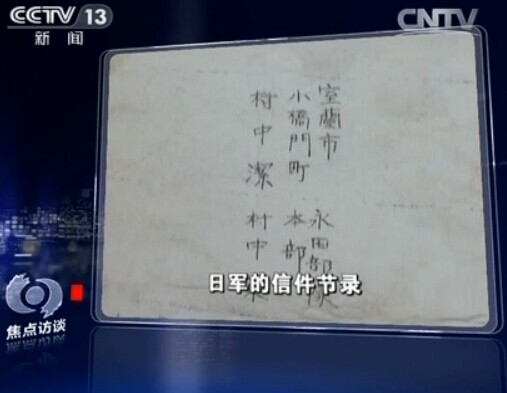 CCTV 13
新闻
CNTV
室蘭市 永田部隊
小橋門町 本部
村中潔 村中
日军的信件节录
焦点访谈